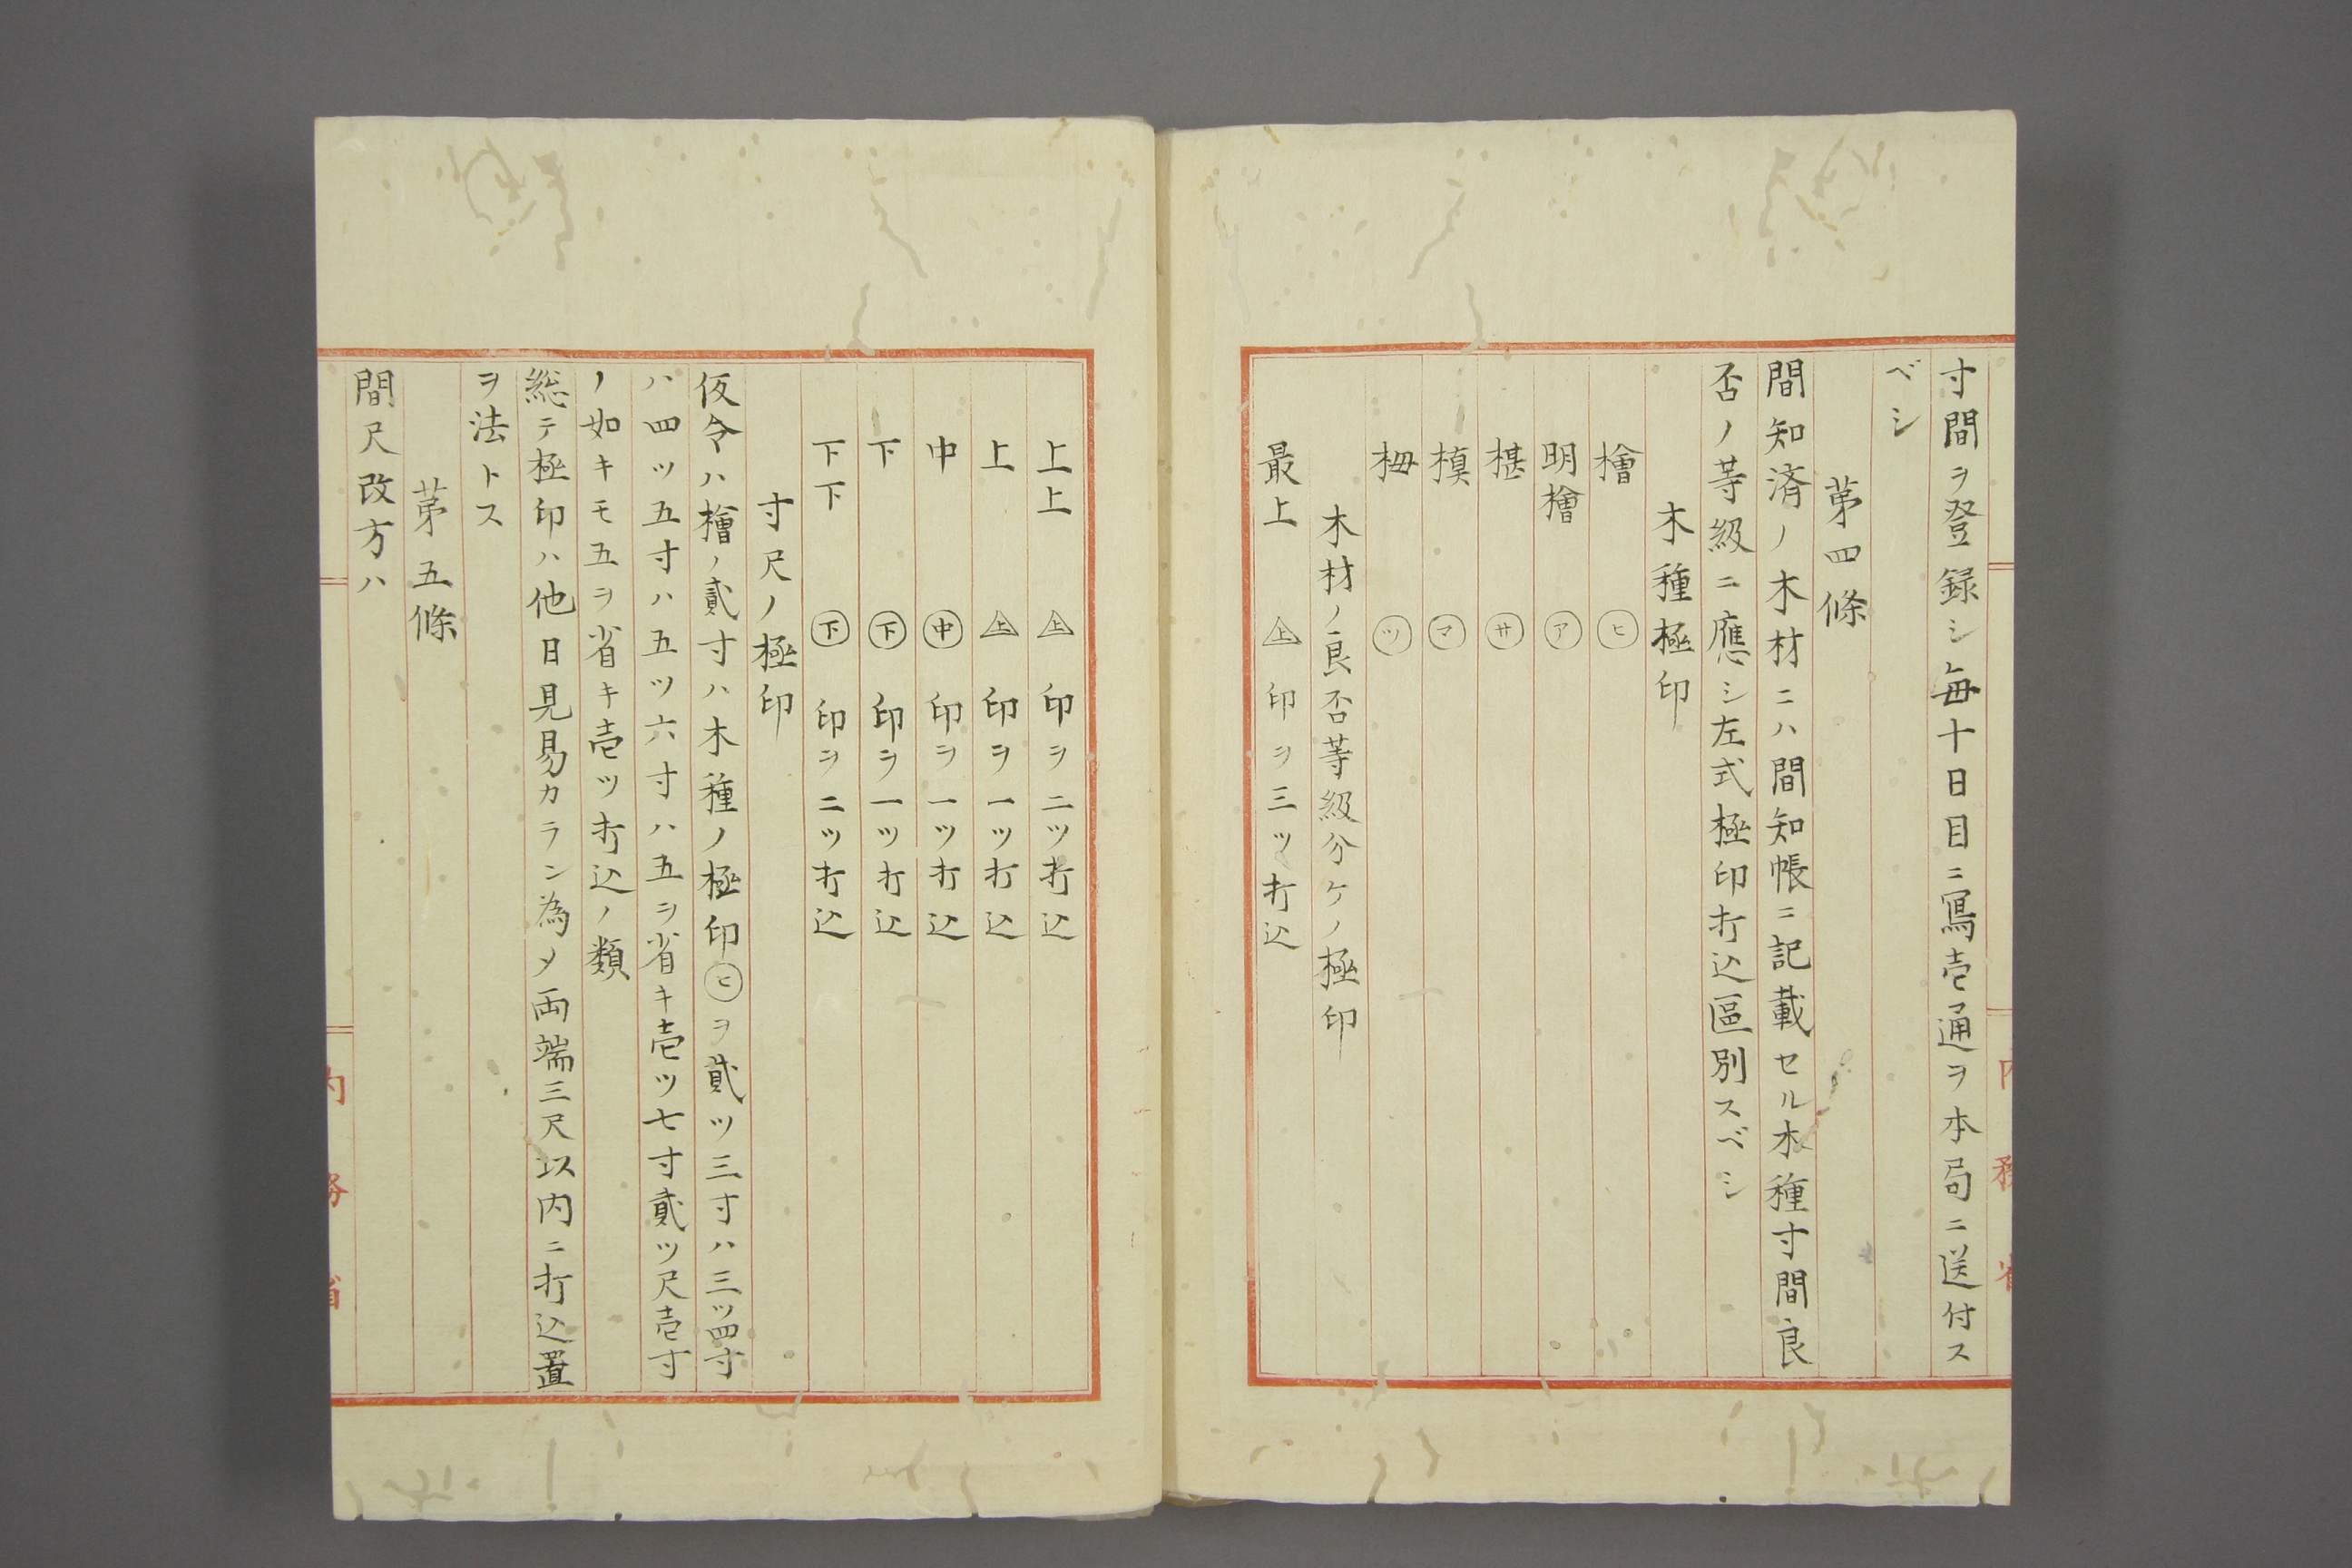 寸間ヲ登録シ毎十日目ニ寫壱通ヲ本局ニ送付ス
ベシ
苐四條
間知済ノ木材ニハ間知帳ニ記載セル木種寸間良
否ノ等級ニ應シ左式極印打込區別スベシ
木種極印
檜 ヒ
明檜 ア
椹 サ
槙 マ
栂 ツ
木材ノ良否等級分ケノ極印
最上 上 印ヲ三ツ打込
上上 上 印ヲ二ツ打込
上 上 印ヲ一ツ打込
中 中 印ヲ一ツ打込
下 下 印ヲ一ツ打込
下下 下 印ヲ二ツ打込
寸尺ノ極印
仮令ハ檜ノ貳寸ハ木種ノ極印ヒヲ貳ツ三寸ハ三ツ四寸
ハ四ツ五寸ハ五ツ六寸ハ五ヲ省キ壱ツ七寸貳ツ尺壱寸
ノ如キモ五ヲ省キ壱ツ打込ノ類
総テ極印ハ他日見易カラン為メ両端三尺以内ニ打込置
ヲ法トス
苐五條
間尺改方ハ
内務省